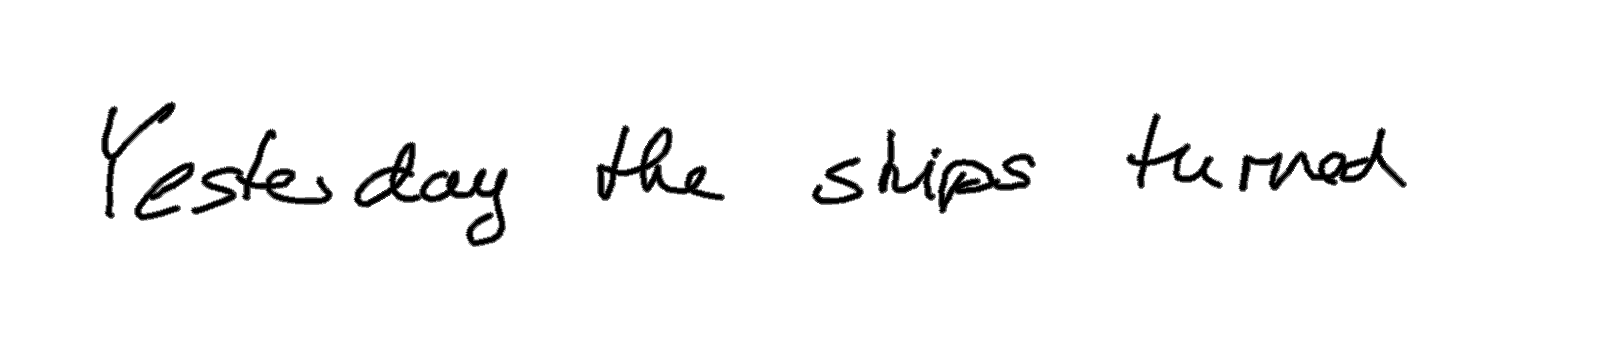 Yesterday the ships turned